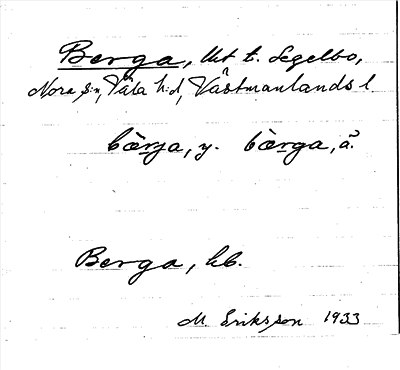 Berga, Utj t. Segelbo,
Nora sn, Våla hd, Västmanlands l.
bærja, y. bærga, ä.
Berga, kb.
M. Eriksson 1933